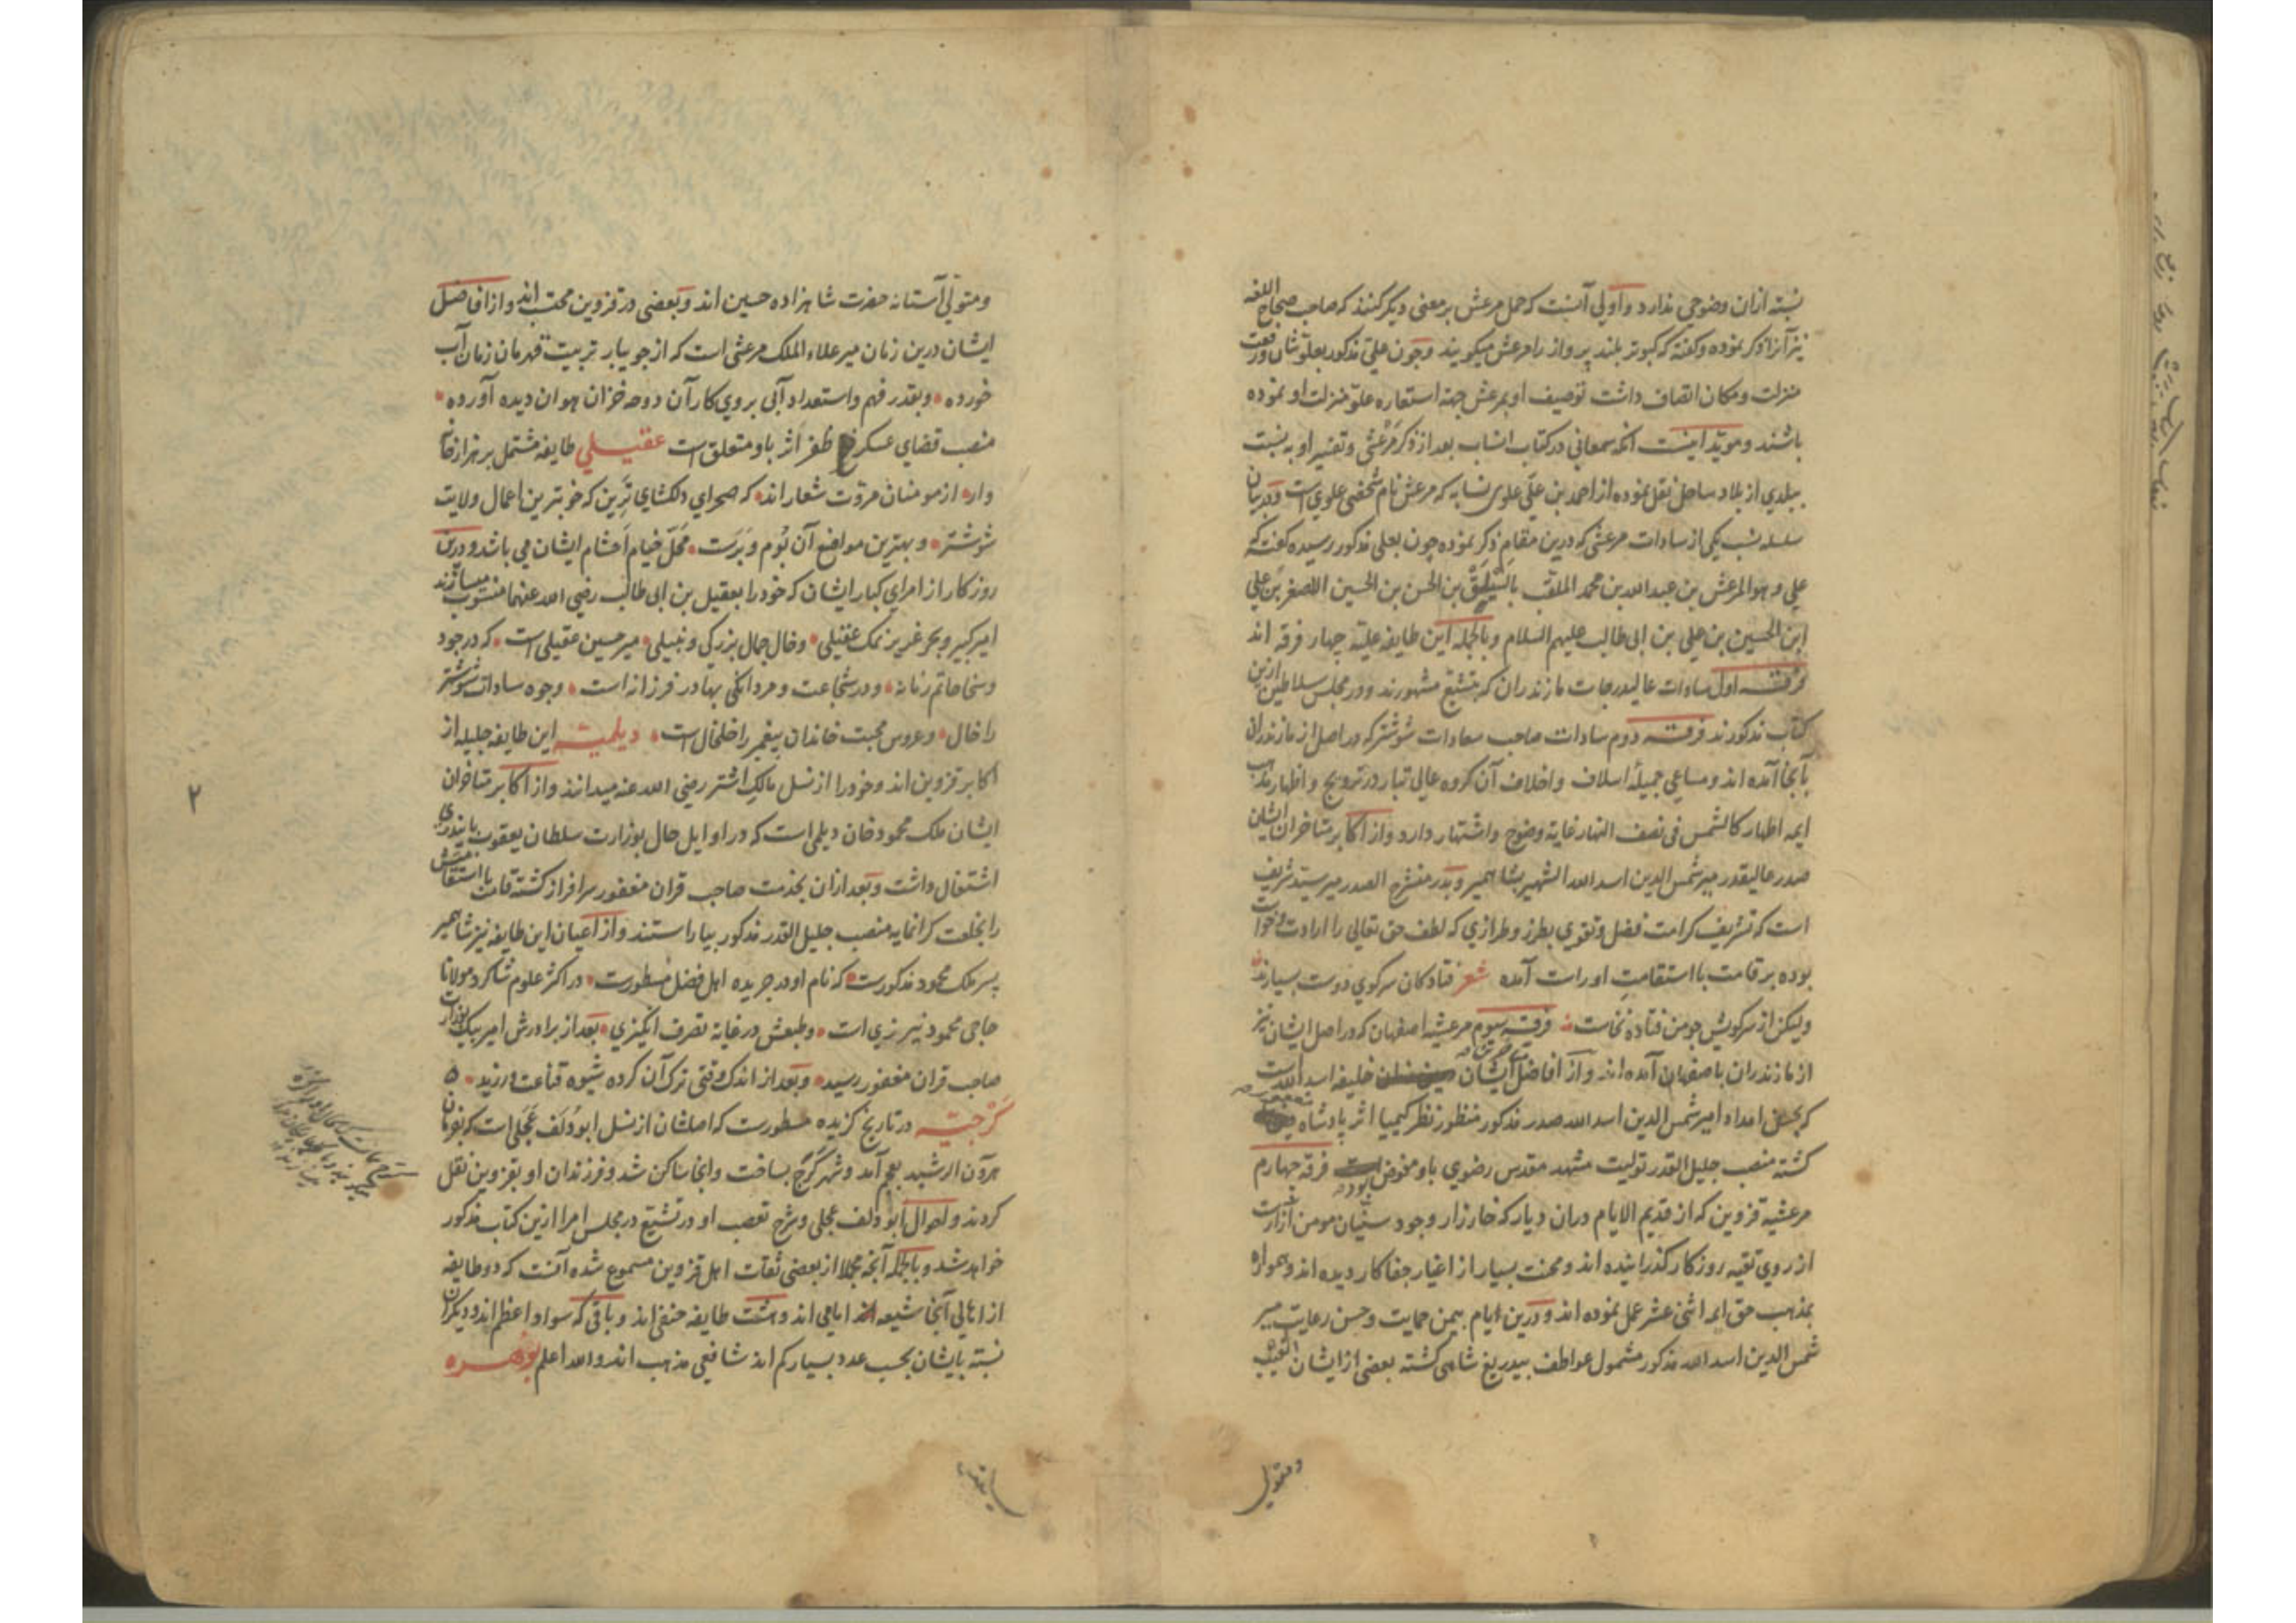 نسبته ازان وضوحی ندارد و اولی آنست که حمل مرعش بر معنی دیگر کنند که صاحب صحاح اللغه
نیز آنرا ذکر نموده و گفته که کبوتر بلند پرواز را مرعش میگویند و چون علی مذکور بعلو شان و رفعت
منزلت و مکان اتصاف داشت توصیف او بمرعش جهة استعاره علو منزلت او نموده
باشند و موید اینست آنکه سمعانی در کتاب انساب بعد از ذکر مرعشی و تفسیر او به نسبت
ببلدی از بلاد ساحل نقل نموده از احمد بن علی علوی نسابه که مرعش نام شخصی علوی است و در بیان
سلسله نسب یکی از سادات مرعشی که درین مقام ذکر نموده چون بعلی مذکور رسیده گفته که
علی و هو المرعش بن عبدالله بن محمد الملقب بالسیلق بن الحسن بن الحسین الاصغر بن علی
ابن الحسین بن علی بن ابی طالب علیهم السلام و بالجمله این طایفه علیه چهار فرقه اند
فرقه اول سادات عالیدرجات مازندران که بتشیع مشهورند و در مجلس سلاطین ازین
کتاب مذکورند فرقه دوم سادات صاحب سعادات شوشتر که در اصل از مازندران
بآنجا آمده اند و مساعی جمیله اسلاف و اخلاف آن کروه عالی تبار در ترویج و اظهار مذهب
ایمه اطهار کالشمس فی نصف النهار غایة وضوح و اشتهار دارد و از اکابر متاخران ایشان
صدر عالیقدر میر شمس الدین اسد الله الشهیر بشاه میر و بدر منشرح الصدر میر سید شریف
است که تشریف کرامت فضل و تقوی بطرز و طرازی که لطف حق تعالی را ارادت و خواست
بوده بر قامت با استقامت او راست آمده شعر فتادکان سر کوی دوست بسیارند
ولیکن از سر کویش چو من فتاده نخاست فرقه سیوم مرعشیه اصفهان که در اصل ایشان نیز
از مازندران باصفهان آمده اند و از افاضل ایشان خلیفه اسد الله است
که بحسن امداد امیر شمس الدین اسد الله صدر مذکور منظور نظر کیمیا اثر پادشاه مغفور
کشته منصب جلیل القدر تولیت مشهد مقدس رضوی باو مفوض بود فرقه چهارم
مرعشیه قزوین که از قدیم الایام دران دیار که خارزار وجود سنیان مومن آزارست
از روی تقیه روزکار کذرانیده اند و محنت بسیار از اغیار جفاکار دیده اند و همواره
بمذهب حق ایمه اثنی عشر عمل نموده اند و درین ایام بیمن حمایت و حسن رعایت میر
شمس الدین اسد الله مذکور مشمول عواطف بیدریغ شاهی کشته بعضی از ایشان نقیب
و متولی
و متولی آستانه حضرت شاهزاده حسین اند و بعضی در قزوین محتسب اند و از افاضل
ایشان درین زمان میر علاء الملک مرعشی است که از جویبار تربیت قهرمان زمان آب
خورده و بقدر فهم و استعداد آبی بروی کار آن دوحه خزان هوان دیده آورده
منصب قضای عسکر ظفر اثر باو متعلق است عقیلی طایفه مشتمل بر هزار خانه
وار از مومنان مروت شعار اند که صحرای دلکشای ترین که خوبترین اعمال ولایت
شوشتر و بهترین مواضع آن بوم و برست محل خیام احشام ایشان می باشد و درین
روزکار از امرای کبار ایشان که خود را بعقیل بن ابی طالب رضی الله عنهما منسوب میسازند
امیر کبیر و بحر غریز نمک عقیلی و خال جمال بزرکی و نبیلی میر حسین عقیلی است که در جود
و سخا حاتم زمانه و در شجاعت و مردانکی بهادر فرزانه است وجوه سادات شوشتر
را خال و عروس محبت خاندان پیغمبر را خلخال است دیلمیه این طایفه جلیله از
اکابر قزوین اند و خود را از نسل مالک اشتر رضی الله عنه میدانند و از اکابر متاخران
ایشان ملک محمود خان دیلمی است که در اوایل حال بوزارت سلطان یعقوب بایندری
اشتغال داشت و بعد ازان بخدمت صاحب قران مغفور سرافراز کشته قامت با استقامتش
را بخلعت کرانمایه منصب جلیل القدر مذکور بیاراستند و از اعیان این طایفه نیز شاه میر
پسر ملک محمود مذکورست که نام او در جریده اهل فضل مسطورست در اکثر علوم شاکرد مولانا
حاجی محمود نیریزی است و طبعش در غایة تصرف انکیزی بعد از برادرش امیر بیک بوزارت
صاحب قران مغفور رسید و بعد از اندک وقتی ترک آن کرده شیوه قناعت ورزید
کرجیه در تاریخ کزیده مسطورست که اصلشان از نسل ابو دلف عجلی است که بفرمان
هرون الرشید بعجم آمد و شهر کرج بساخت و آنجا ساکن شد و فرزندان او بقزوین نقل
کردند و احوال ابو دلف عجلی و شرح تعصب او در تشیع در مجلس امرا ازین کتاب مذکور
خواهد شد و بالجمله آنچه مجملا از بعضی ثقات اهل قزوین مسموع شده آنست که دو طایفه
از اهالی آنجا شیعه امامی اند و هشت طایفه حنفی اند و باقی که سواد اعظم اند و دیکران
نسبته بایشان بحسب عدد بسیار کم اند شافعی مذهب اند و الله اعلم بوهره
۲